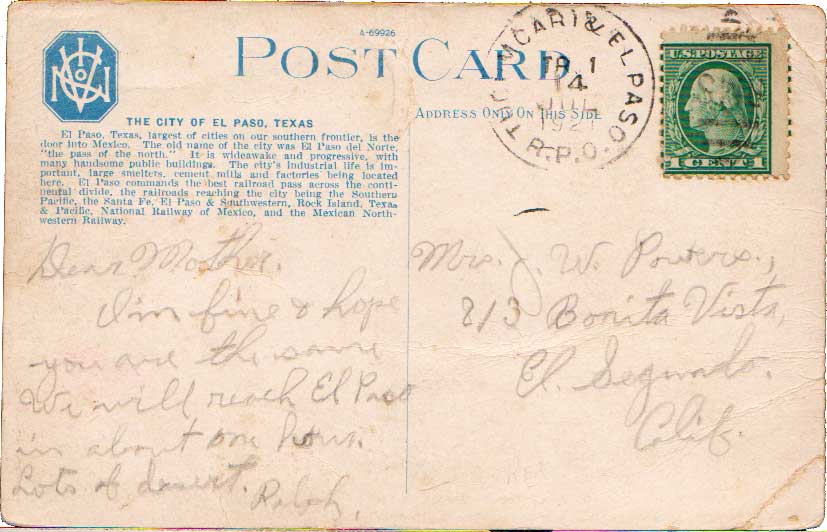 A-69926
POST CARD
ADDRESS ONLY ON THIS SIDE
TUCUMCARI & EL PASO
TR. 1
4
JUL
1921
R.P.O.
U.S. POSTAGE
1 CENTS 1
THE CITY OF EL PASO, TEXAS
El Paso, Texas, largest of cities on our southern frontier, is the
door into Mexico. The old name of the city was El Paso del Norte,
"the pass of the north." It is wideawake and progressive, with
many handsome public buildings. The city's industrial life is im-
portant, large smelters, cement mills and factories being located
here. El Paso commands the best railroad pass across the conti-
nental divide, the railroads reaching the city being the Southern
Pacific, the Santa Fe, El Paso & Southwestern, Rock Island, Texas
& Pacific, National Railway of Mexico, and the Mexican North-
western Railway.
Dear Mother.
I'm fine & hope
you are the same
We will reach El Paso
in about one hour.
Lots of desert.
Ralph.
Mrs. J. W. Powers.,
213 Bonita Vista,
El. Segundo.
Calif.